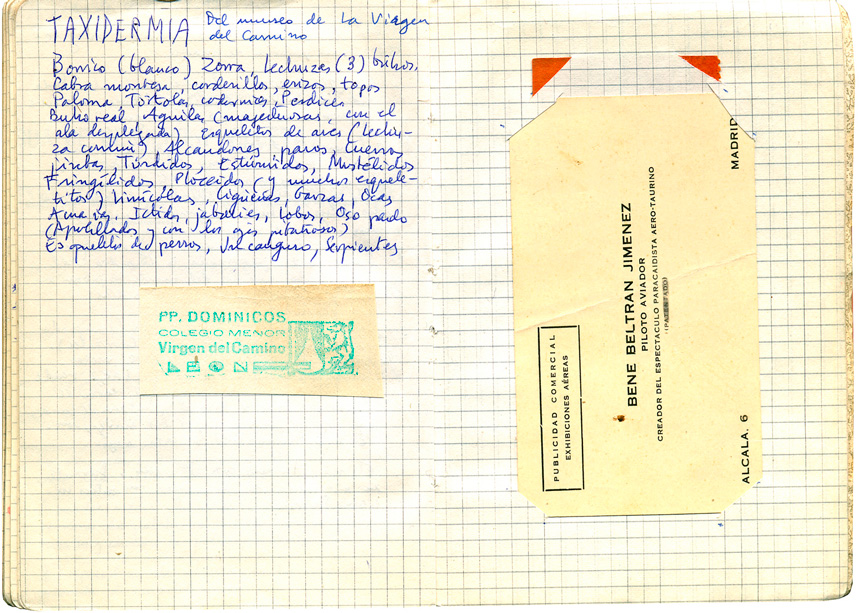 TAXIDERMIA Del museo de La Virgen
del Camino
Borrico (blanco) Zorra, Lechuzas (3) buhos,
Cabra montesa, corderillos, erizos, topos
Paloma, Tortolas, codornices, Perdices
Buho real, Aguilas (majestuosas, con el
ala desplegada) Esqueletos de aves (Lechu-
za común) Alcaudones paros, Cuervos
Túrdidos, Estúrnidos, Mustélidos
Fringílidos, Ploceidos (y muchos esquele-
titos) Limícolas, Cigüeñas, Garzas, Ocas
jabalíes, Lobos, Oso pardo
(Apolillados y con los ojos pitañosos)
Esqueletos de perros, Un canguro, Serpientes
PP. DOMINICOS
COLEGIO MENOR
Virgen del Camino
LEON
PUBLICIDAD COMERCIAL
EXHIBICIONES AÉREAS
BENE BELTRAN JIMENEZ
PILOTO AVIADOR
CREADOR DEL ESPECTACULO PARACAIDISTA AERO-TAURINO
(PATENTADO)
ALCALA, 6 MADRID